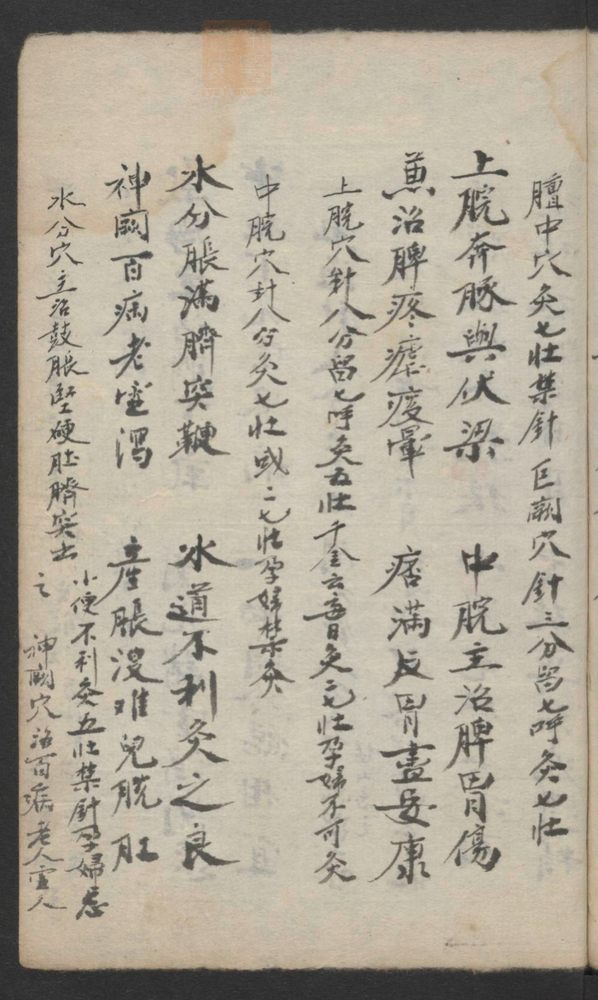 膻中穴灸七壯禁針 巨闕穴針三分留七呼灸七壯
上脘奔豚與伏梁 中脘主治脾胃傷
兼治脾疼瘧痰暈 痞滿反胃盡安康
上脘穴針八分留七呼灸五壯千金云每日灸二七壯孕婦不可灸
中脘穴針八分灸七壯或二七壯孕婦禁灸
水分脹滿臍突鞕 水道不利灸之良
神闕百病老虛瀉 産脹溲难兒脱肛
水分穴主治鼓脹堅硬肚臍突出
小便不利灸五壯禁針孕婦忌
之 神闕穴治百病老人虛人